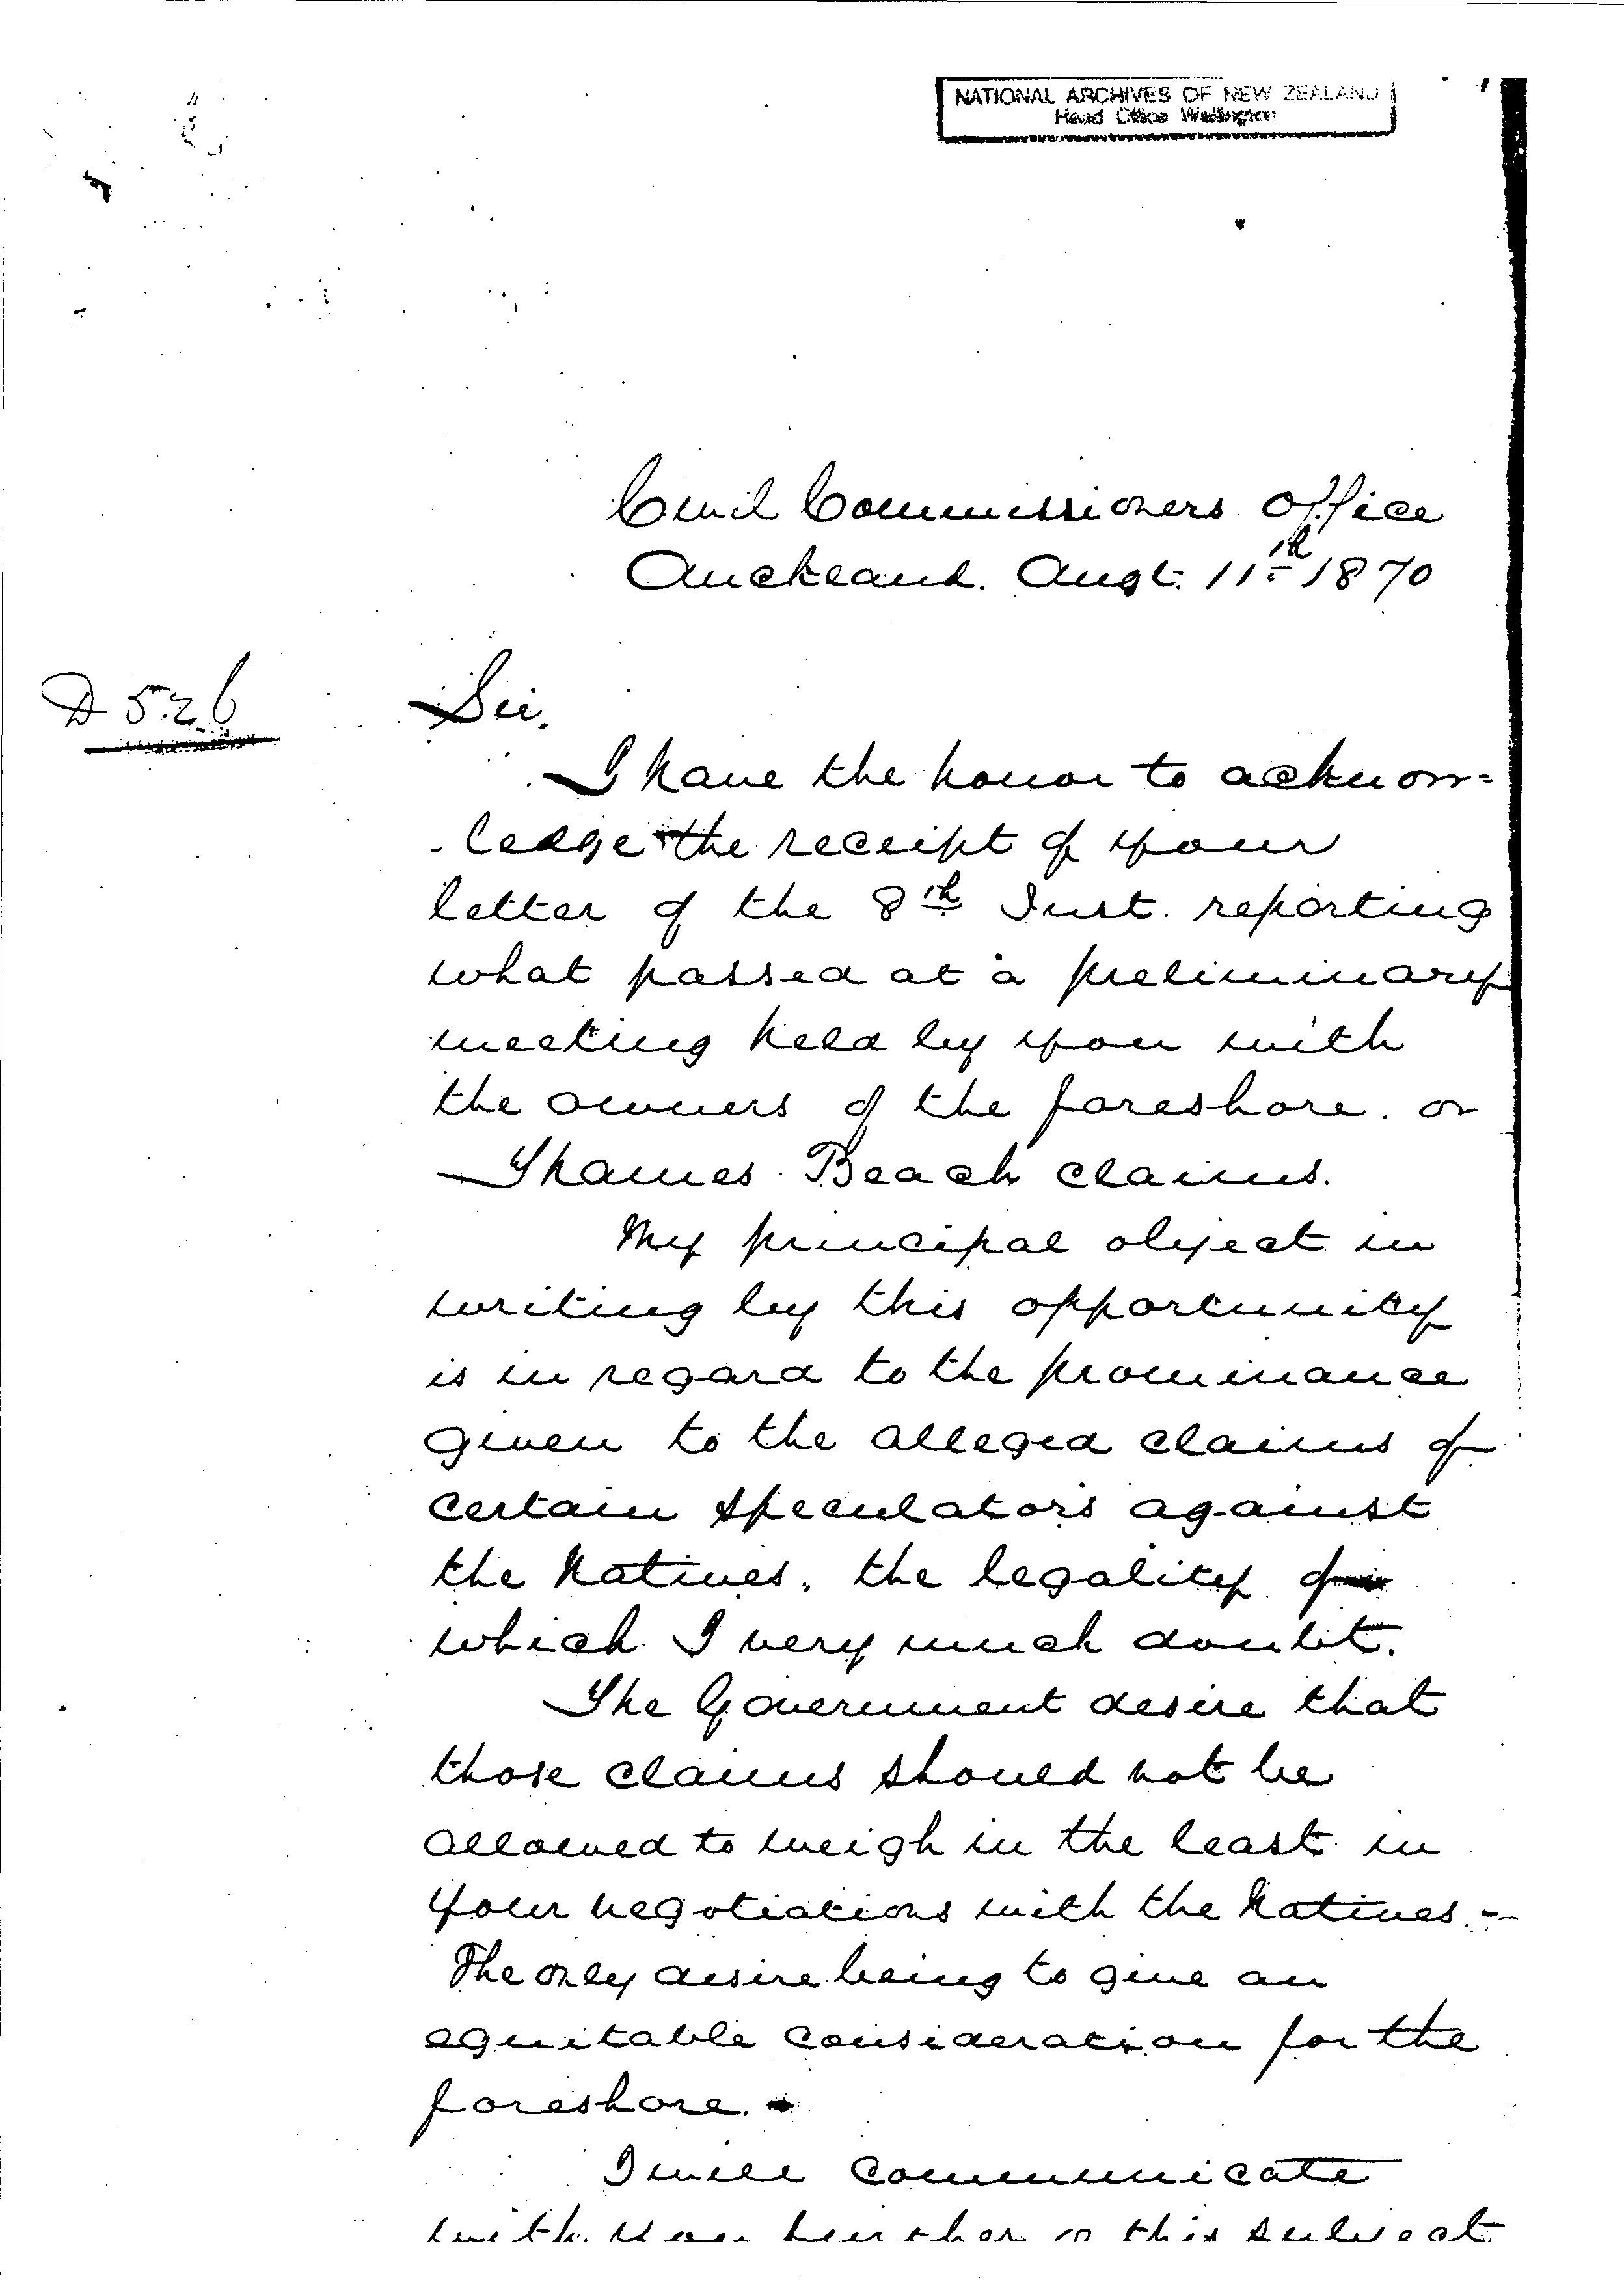 NATIONAL ARCHIVES OF NEW ZEALAND
Head Office Wellington
Civil Commissioners Office
Auckland. Augt. 11th 1870
D 526
Sir,
I have the honor to acknow=
-ledge the receipt of your
letter of the 8th Inst. reporting
what passed at a preliminary
meeting held by you with
the owners of the foreshore. or
Thames Beach claims.
My principal object in
writing by this opportunity
is in regard to the prominance
given to the alleged claims of
certain speculators against
the Natives. the legality of
which I very much doubt.
The Government desire that
those claims should not be
allowed to weigh in the least in
your negotiations with the Natives.-
The only desire being to give an
equitable consideration for the
foreshore.-
I will communicate
with you further on this subject